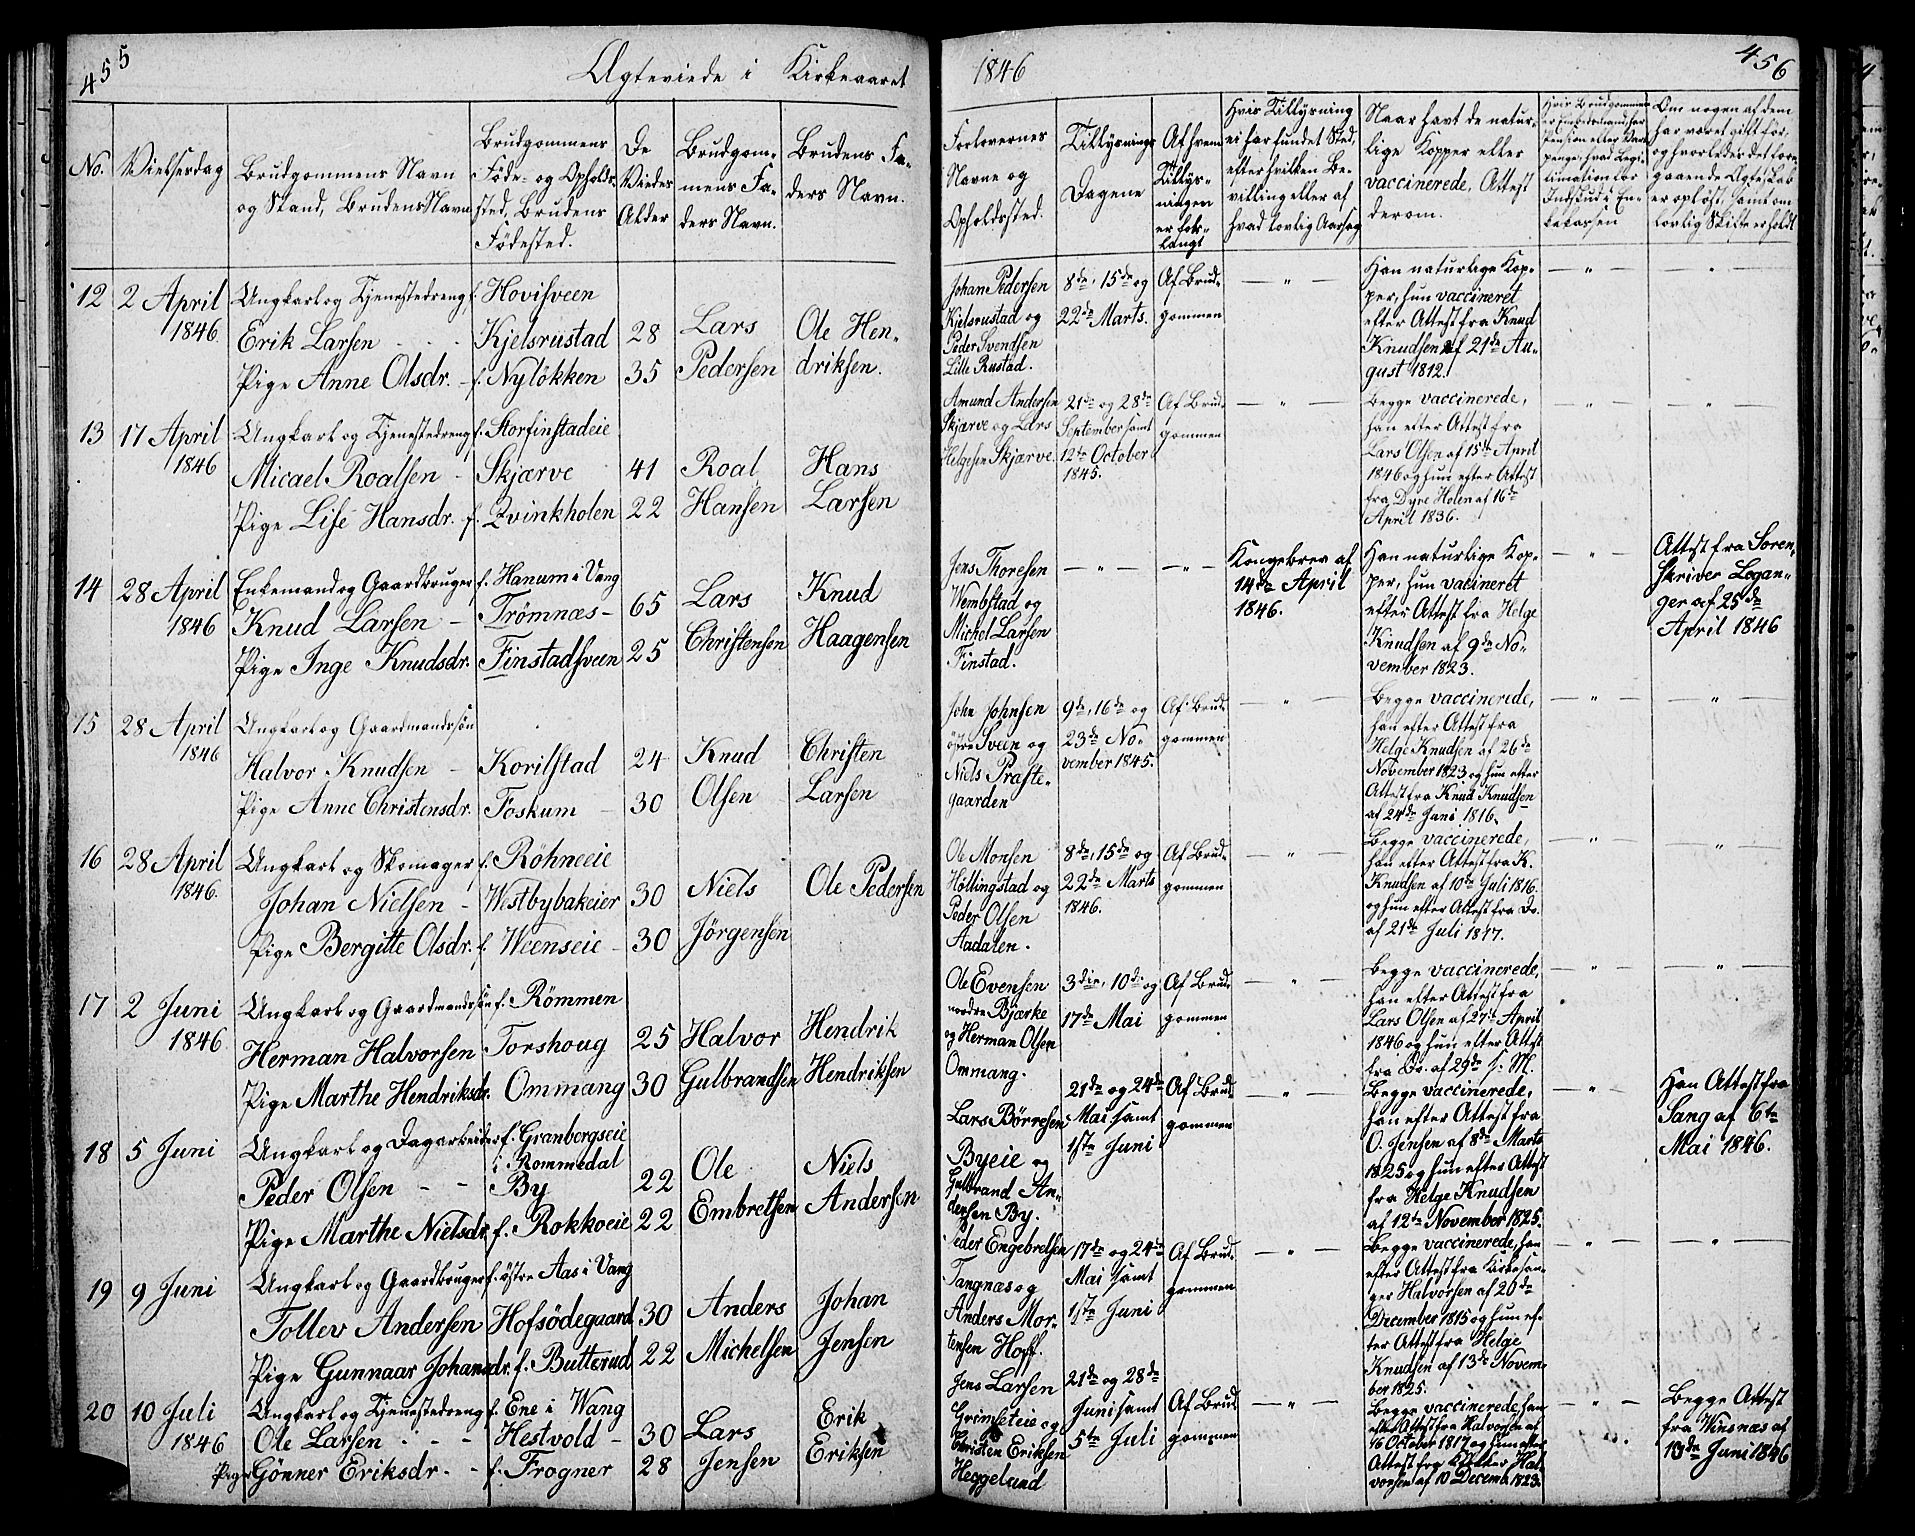 455
Ægteviede i Kirkeaaret
1846
456
No.
Vielsesdag
Brudgommens Navn
og Stand, Brudens Navn
Brudgommens
Føde- og Opholds-
sted, Brudens
Fødested.
De
Vieder
Alder
Brudgom-
mens Fa-
ders Navn.
Brudens Fa-
ders Navn.
Forlovernes
Navne og
Opholdssted.
Tillysnings
Dagene
Af hvem
Tillys-
ningen
er for-
langt
Hvis Tillysning
ei har fundet Sted,
efter hvilken Be-
villing eller af
hvad lovlig Aarsag
Naar havt de natur-
lige Kopper eller
vaccinerede, Attest
derom.
Hvis Brudgommen
er Embedsmand, har
Pension eller
penge, hvad Legi-
timation for
Indskud i En-
kekassen
Om nogen af dem
har været gift før,
og hvorledes det fore-
gaaende Ægteskab
er opløst, samt om
lovlig Skifte er holdt
12 2 April
1846.
Ungkarl og Tjenestedreng, f. Hovisveen
Erik Larsen - - - Kjelsrustad 28 Lars Ole Hen-
Pige Anne Olsdr. - f. Nyløkken 35 Pedersen driksen.
Johan Pedersen
Kjelsrustad og
Peder Svendsen
Lille Rustad.
8de, 15de og
22de Marts.
Af Brud-
gommen
— " —
Han naturlige Kop-
per, hun vaccineret
efter Attest fra Knud
Knudsen af 21de Au-
gust 1812.
— " —
— " —
13 17 April
1846
Ungkarl og Tjenestedreng f. Storfinstadeie
Micael Roalsen - Skjærve 41 Roal Hans
Pige Lise Hansdr. f. Qvinkholen 22 Hansen Larsen
Amund Andersen
Skjærve og Lars
Helgesen Skjærve.
21de og 28de
September samt
12te October
1845.
Af Brud-
gommen
— " —
Begge vaccinerede,
han efter Attest fra
Lars Olsen af 15de April
1846 og hun efter Attest
fra Dyre Holen af 16de
April 1836.
— " —
— " —
14 28 April
1846
Enkemand og Gaardbruger f. Hanum i Vang
Knud Larsen - Trømnæs - 65 Lars Knud
Pige Inge Knudsdr. Finstadsveen 25 Christensen Haagensen
Jens Thoresen
Wembstad og
Michel Larsen
Finstad.
— " —
— " —
Kongebrev af
14de April
1846.
Han naturlige Kop-
per, hun vacineret
efter Attest fra Helge
Knudsen af 9de No-
vember 1823.
— " —
Attest fra Soren-
skriver Logan-
ger af 25de
April 1846
15 28 April
1846
Ungkarl og Gaardmandssøn
Halvor Knudsen - Korilstad 24 Knud Christen
Pige Anne Christensdr. Foskum - 30 Olsen Larsen
John Johnsen
østre Sveen og
Niels Præste-
gaarden
9de, 16de og
23de No-
vember 1845.
Af Brud-
gommen
— " —
Begge vaccinerede,
han efter Attest fra
Helge Knudsen af 26de
November 1823 og hun efter
Attest fra Knud Knudsen
af 24de Juni 1816.
— " —
— " —
16 28 April
1846.
Ungkarl og Skomager f. Røhneeie
Johan Nielsen - Westbybakeier 30 Niels Ole Pedersen
Pige Bergitte Olsdr. f. Weenseie - 30 Jörgensen
Ole Monsen
Høttingstad og
Peder Olsen
Aadalen.
8de, 15de og
22de Marts
1846.
Af Brud-
gommen
— " —
Begge vaccinerede,
han efter Attest fra K.
Knudsen af 10de Juli 1816.
og hun efter Attest fra Do.
af 21de Juli 1817.
— " —
— " —
17 2 Juni
1846
Ungkarl og Gaardmandssøn f. Rømmen
Herman Halvorsen Torshoug 25 Halvor Hendrik
Pige Marthe Hendriksdr. Ommang 30 Gulbrandsen Hendriksen
Ole Evensen
nordre Bjærke
og Herman Olsen
Ommang.
3die, 10de og
17de Mai
Af Brud-
gommen
— " —
Begge vaccinerede,
han efter Attest fra
Lars Olsen af 27de April
1846 og hun efter Attest
fra Do. af 29de s. M.
— " —
— " —
18 5 Juni
Ungkarl og Dagarbeider f. Granbergseie
i Rommedal
Peder Olsen - - By 22 Ole Niels
Pige Marthe Nielsdr. f. Rokkoeie 22 Embretsen Andersen
Lars Børresen
Byeie og
Gulbrand An-
dersen By.
21de og 24de
Mai samt
1ste Juni
Af Brud-
gommen
— " —
Begge vaccinerede,
han efter Attest fra
O. Jensen af 8de Marts
1825 og hun efter Attest
fra Helge Knudsen
af 12te November 1825.
— " —
Han Attest fra
Sang af 6te
Mai 1846.
19 9 Juni
Ungkarl og Gaardbruger f. østre Aas i Vang
Tollev Andersen Hofsødegaard 30 Anders Johan
Pige Gunnaar Johansdr. f. Butterud 22 Michelsen Jensen
Peder Engebretsen
Tangnæs og
Anders Mor-
tensen Hoff.
17de og 24de
Mai samt
1ste Juni
Af Brud-
gommen
— " —
Begge vaccinerede, han
efter Attest fra Kirkesan-
ger Halvorsen af 20de
December 1815 og hun ef-
ter Attest fra Helge
Knudsen af 13de Novem-
ber 1825.
— " —
— " —
20 10 Juli
1846
Ungkarl og Tjenestedreng f. Ene i Wang
Ole Larsen - - - Hestvold - 30 Lars Erik
Pige Gønner Eriksdr. - f. Frogner 28 Jensen Eriksen
Jens Larsen
Grimseteie og
Christen Eriksen
Heggelund
21de og 28de
Juni samt
5te Juli
Af Brud-
gommen
— " —
Begge vaccinerede, han
efter Attest fra Halvorsen af
16 October 1817 og hun efter
Attest fra Hal-
vorsen af 10 Decemb. 1823.
— " —
Begge Attest
fra Winsnæs af
13de Juni 1846